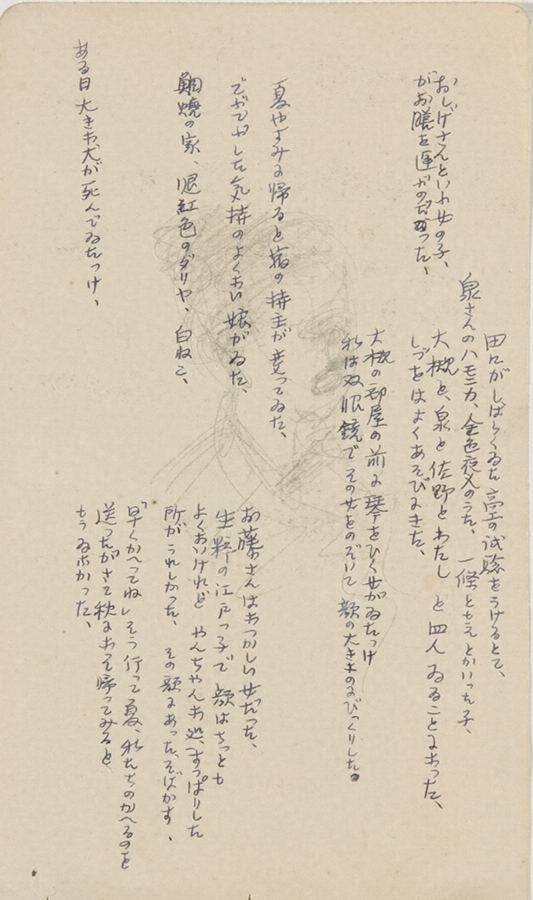 おしげさんといふ女の子、
がお膳を運ぶのだった、
田口がしばらくゐた 高の試験をうけるとて、
泉さんのハモニカ、金色夜叉のうた、一條ともえとかいった子、
大槻と、泉と佐野とわたし と四人ゐることになった、
しづをはよくあそびにきた、
大槻の部屋の前に琴をひく女がゐたっけ
私は双眼鏡でその女をのぞいて 顔の大きなのにびっくりした。
夏やすみに帰ると宿の持主が変ってゐた、
でぶでぶした気持のよくない娘がゐた、
鯛焼の家、退紅色のダリヤ、白ねこ、
お藤さんはなつかしい女だった、
生粋の江戸っ子で 顔はちっとも
よくないけれど やんちゃんな
所がうれしかった、その顔にあった、そばかす、
「早くかへってね」そう行って夏、私たちのかへるのを
送ったが さて秋になって帰ってみると
もうゐなかった、
ある日 大きな犬が死んでゐたっけ、